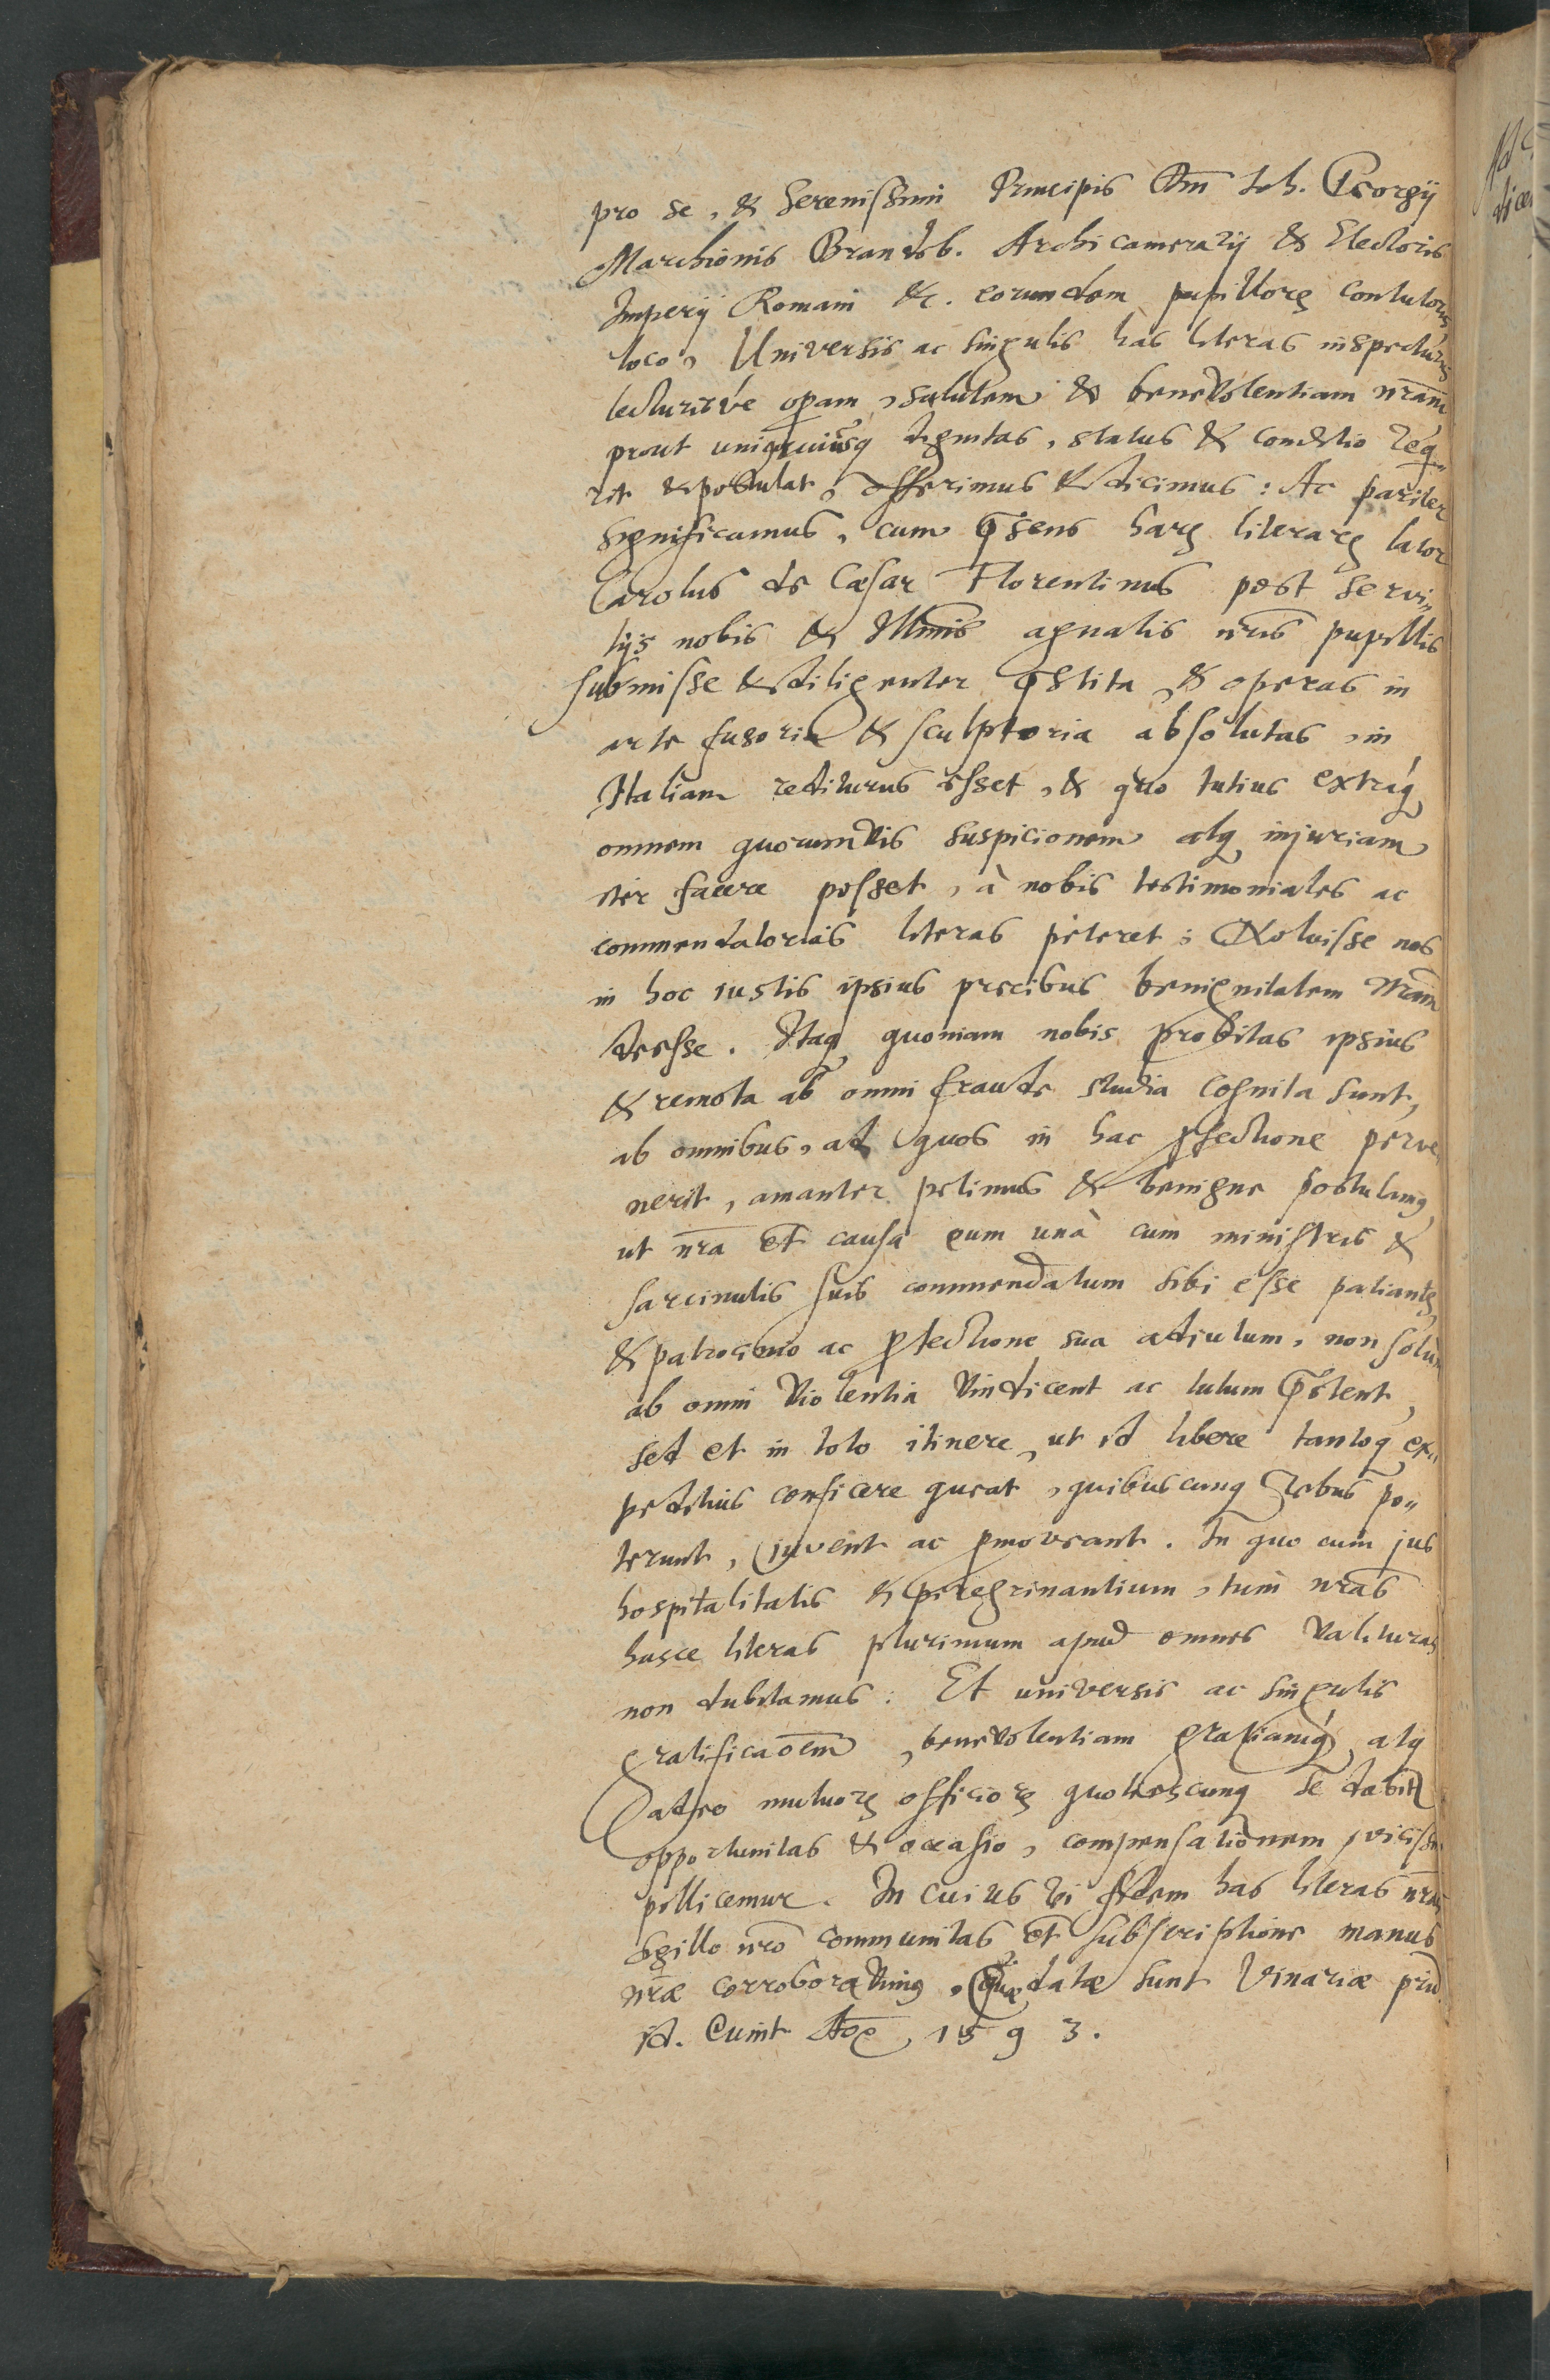 pro se, & Serenissimi Principis Dn̄i Joh. Georgij
Marchionis Brandeb. Archicamerarij & Electoris
Imperij Romani &c. eorundem pupilloꝝ contutoris
loco, Universis ac singulis has literas inspecturis
lecturisve operam, salutem & benevolentiam nr̄am
prout uniqcuiusq dignitas, status & conditio requi„
rit & postulat, offerimus & dicimus: Ac pariter
significamus, cum p̄sens harꝝ literarꝝ lator
Carolus de Cæsar Florentinus post servi„
tijs nobis & Illmis agnatis nr̄is pupillis
submisse & diligenter p̄stita, & operas in
arte fusoria & sculptoria absolutas, in
Italiam rediturus esset, & quo tutius extraq́
omnem quorumvis suspicionem atq injuriam
iter facere posset, à nobis testimoniales ac
commendatorias literas peteret; Noluisse nos
in hoc iustis ipsius precibus benignitatem nr̄am
deesse. Itaq quoniam nobis probitas ipsius
& remota ab omni fraude studia cognita sunt,
ab omnibus, ad quos in hac ꝓfectione perve„
nerit, amanter petimus & benigne postulamꝰ
ut nr̄a et causa eum unà cum ministris &
sarcinulis suis commendatum sibi esse patiantꝛ
& patrocinio ac ꝓtectione sua adiutum, non solùm
ab omni violentia vindicent ac tutum p̄stent,
sed et in toto itinere, ut id libere tantoq ex„
peditius conficere queat, quibuscunq rebus po„
terunt, iuvent ac ꝓmoveant. In quo cum jus
hospitalitatis & peregrinantium, tum nr̄as
hasce literas plurimum apud omnes valituras
non dubitamus: Et universis ac singulis
gratificaōem, benevolentiam gratiamq́, atq
adeo mutuoꝝ officioꝝ quotiescunq se dabit
opportunitas & occasio, compensationem vicissim
pollicemur. In cuius rei fidem has literas nr̄as
sigillo nr̄o communitas et subscriptione manus
nr̄æ corroboravimꝰ, Quæ datæ sunt Vinariæ prid
id. Ao, 1593.